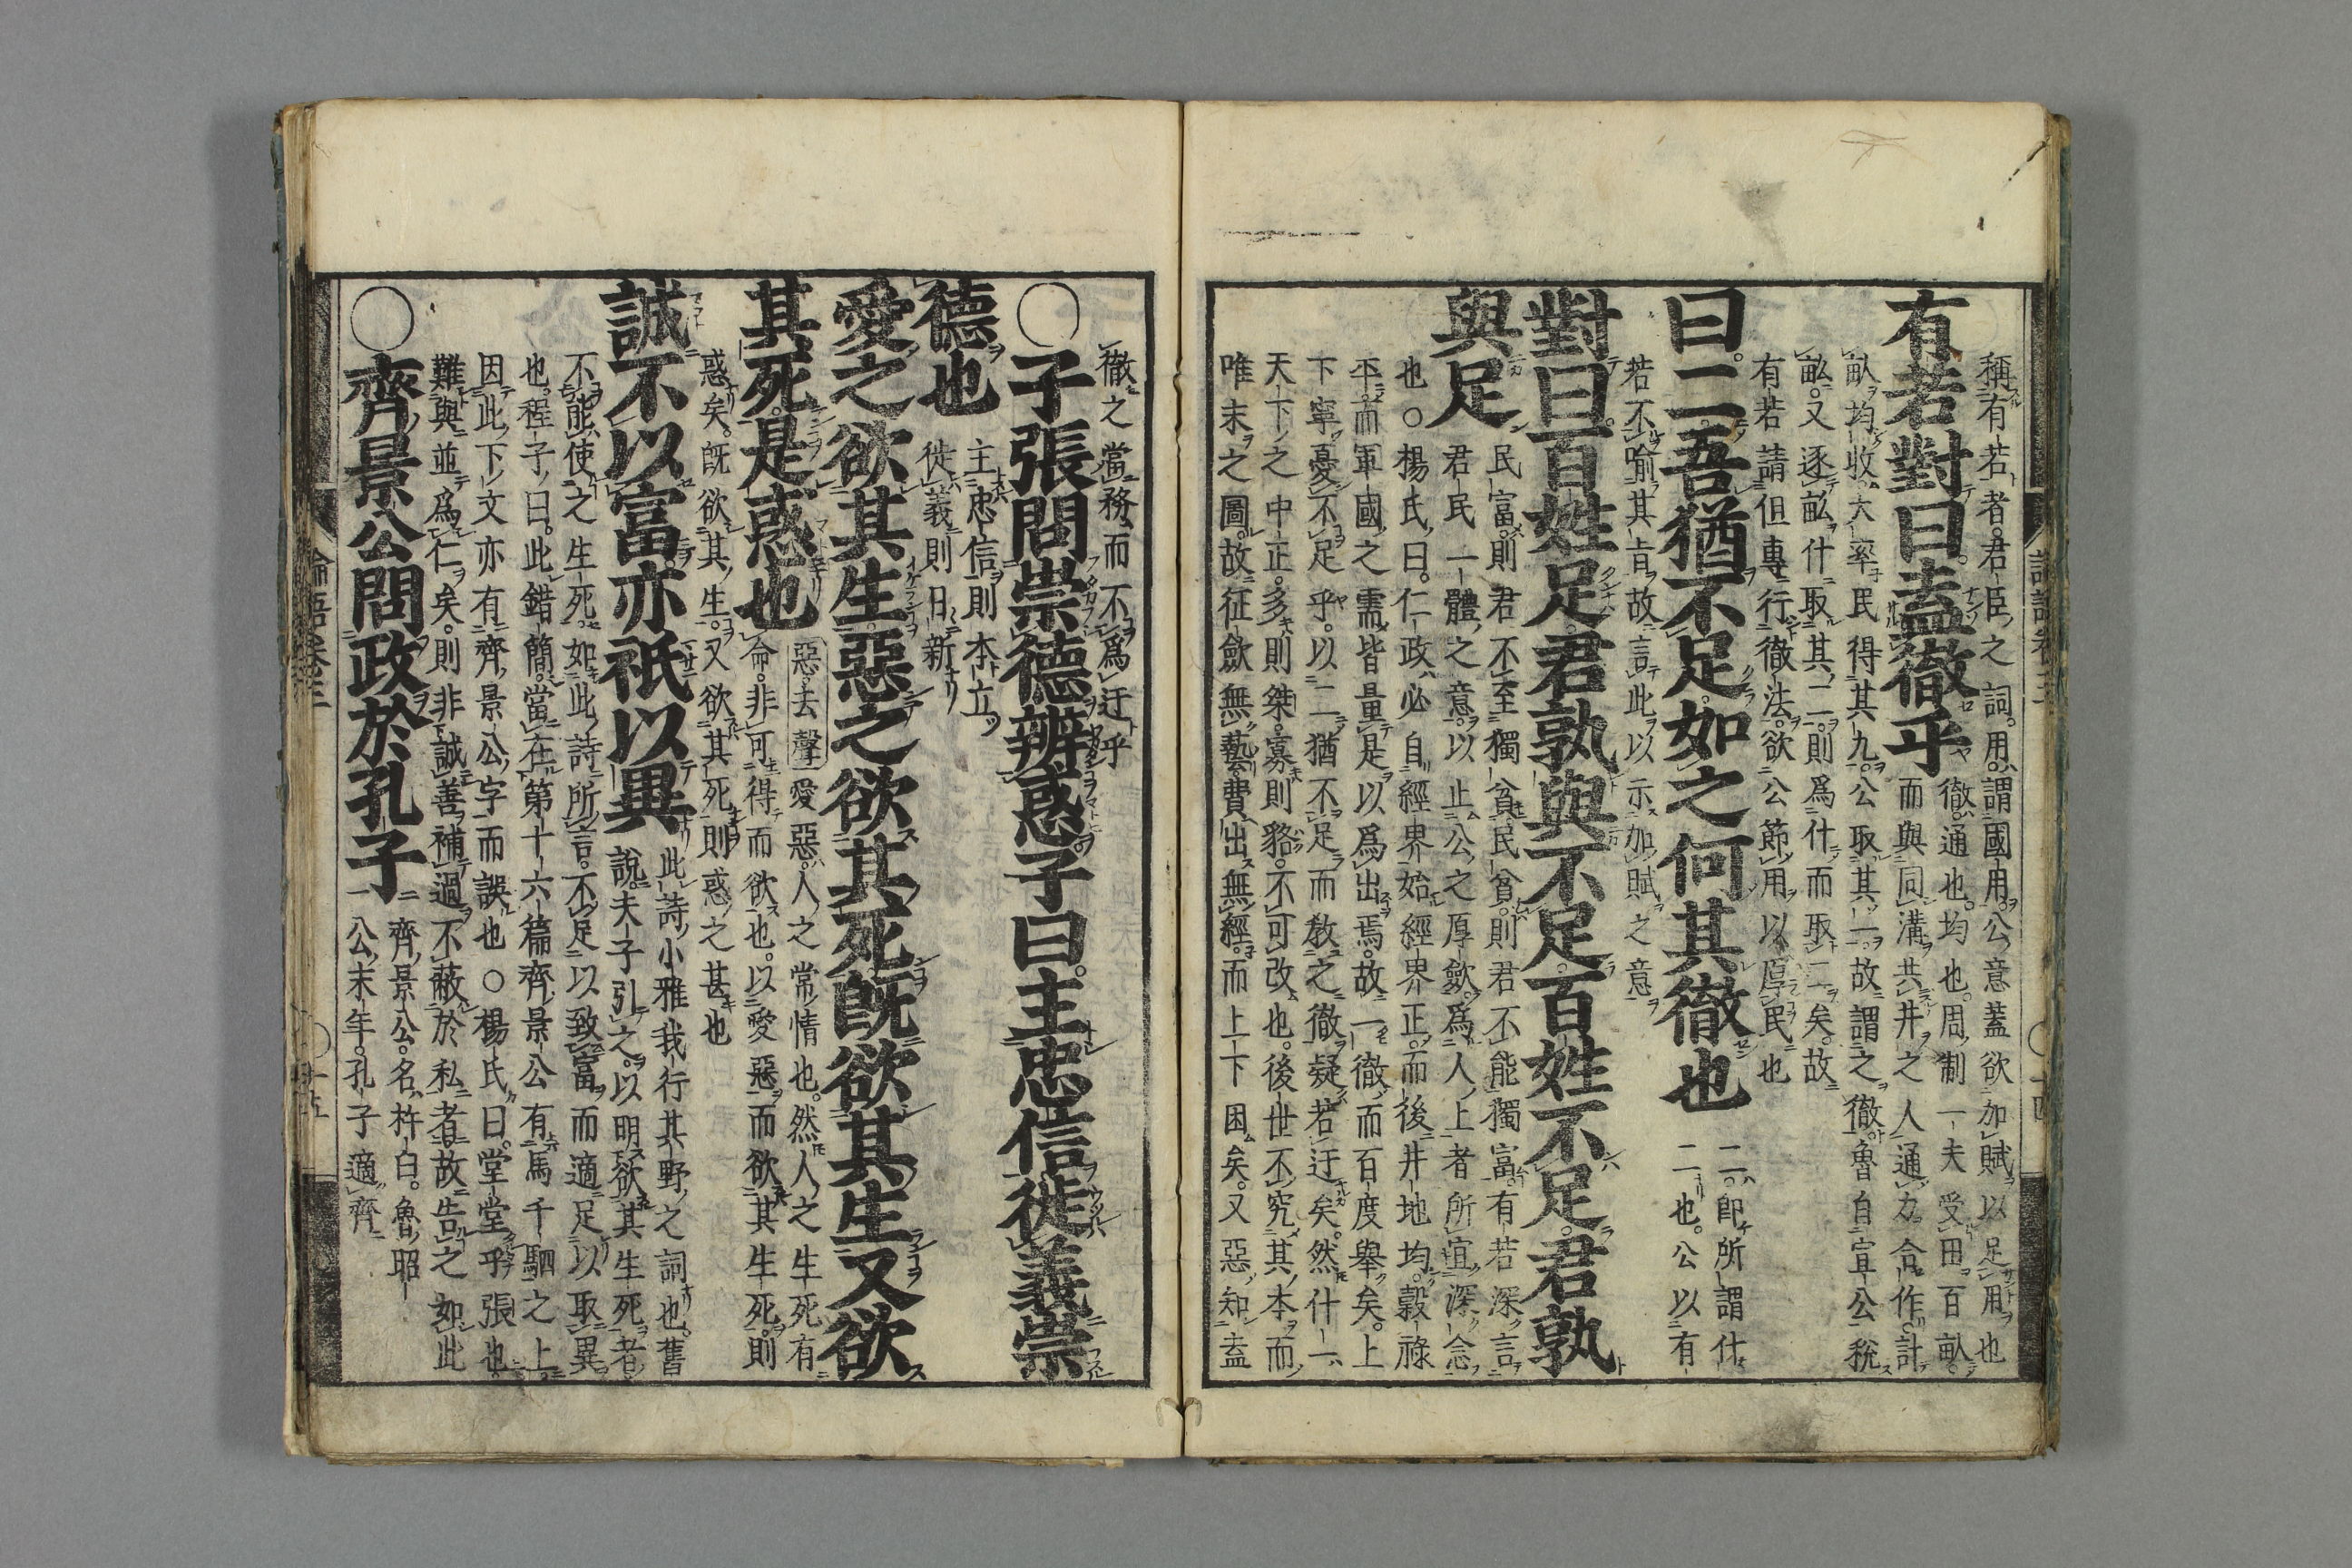 稱有若者君臣之詞用謂國用公意蓋欲加賦以足用也
有若對曰。盍徹乎
徹通也。均也。周制一夫受田百畝。
而與同溝共井之人通力合作計
畝均收大率民得其九。公取其一。故謂之徹魯自宣公稅
畝。又逐畝什取其二。則爲什而取二矣。故
有若請但專行徹法。欲公節用以厚民也
曰。二吾猶不足。如之何其徹也
二。即所謂什
二也。公以有
若不喻其旨故言此以示加賦之意
對曰。百姓足。君孰與不足。百姓不足。君孰
與足
民富。則君不至獨貧民貧。則君不能獨富。有若深言
君民一體之意。以止公之厚斂。爲人上者所宜深念
也○楊氏曰。仁政必自經界始經界正。而後井地均。穀祿
平。而軍國之需皆量是以爲出焉。故一徹而百度舉矣。上
下寧憂不足乎。以二猶不足而教之徹疑若迂矣。然什一
天下之中正。多則桀。寡則貉。不可改也。後世不究其本而
唯末之圖。故征斂無藝。費出無經。而上下困矣。又惡知盍
徹之當務而不爲迂乎
○子張問崇德辨惑子曰。主忠信徙義崇
德也
主忠信則本立。
徙義則日新
愛之欲其生。惡之欲其死。既欲其生又欲
其死。是惑也
惡去聲 愛惡。人之常情也。然人之生死有
命。非可得而欲也。以愛惡而欲其生死。則
惑矣。既欲其生。又欲其死則惑之甚也
誠不以富。亦祇以異
此詩小雅我行其野之詞也。舊
說。夫子引之。以明欲其生死者
不能使之生死。如此詩所言。不足以致富而適足以取異
也。程子曰。此錯簡。當在第十六篇齊景公有馬千駟之上
因此下文亦有齊景公字而誤也○楊氏曰。堂堂乎張也
難與並爲仁矣。則非誠善補過不蔽於私者。故告之如此
○齊景公問政於孔子
齊景公。名杵臼。魯昭
公末年。孔子適齊